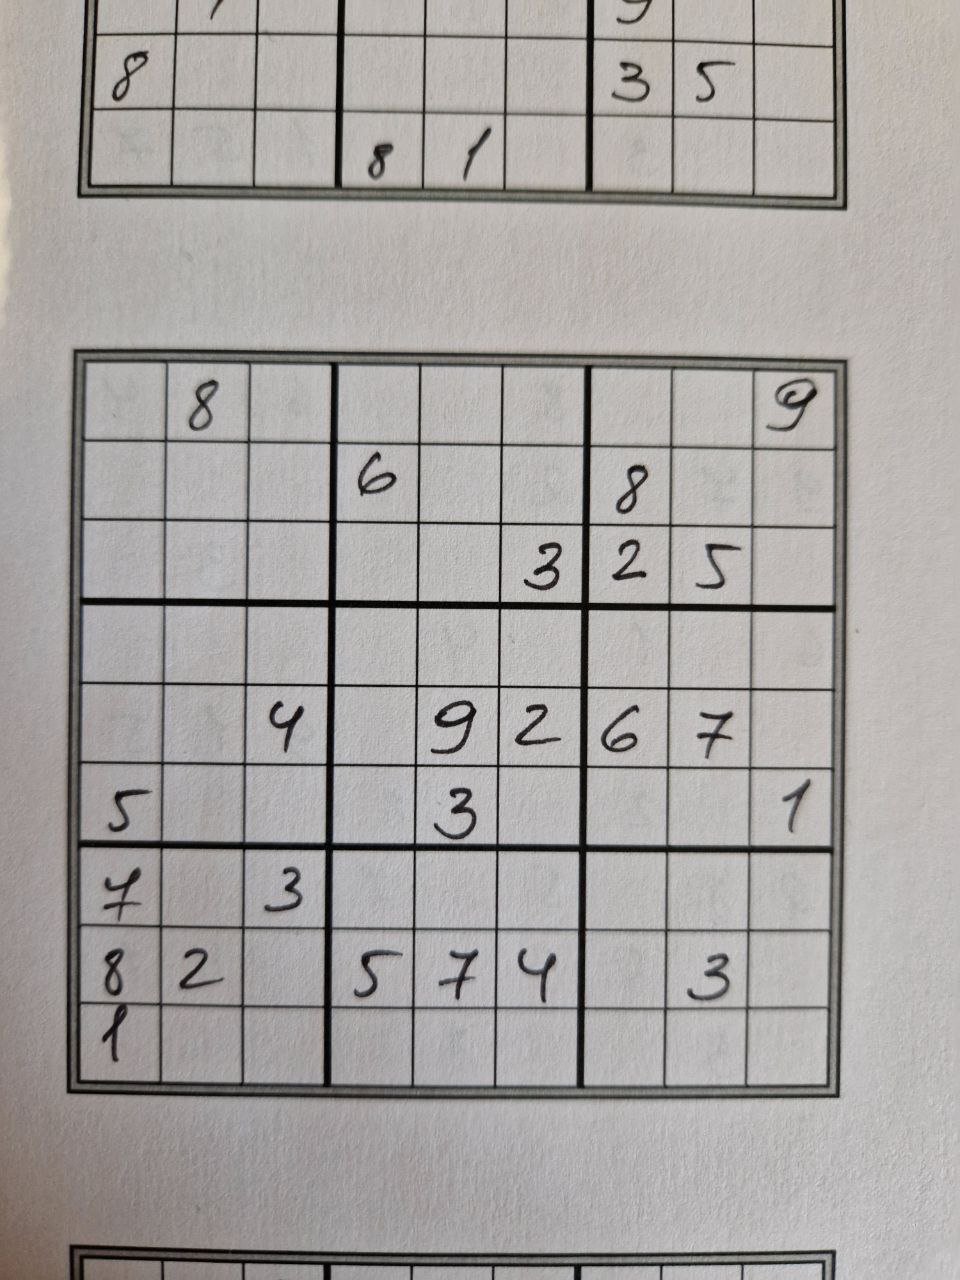 9
8 3 5
8 1
8 9
6 8
3 2 5
4 9 2 6 7
5 3 1
7 3
8 2 5 7 4 3
1